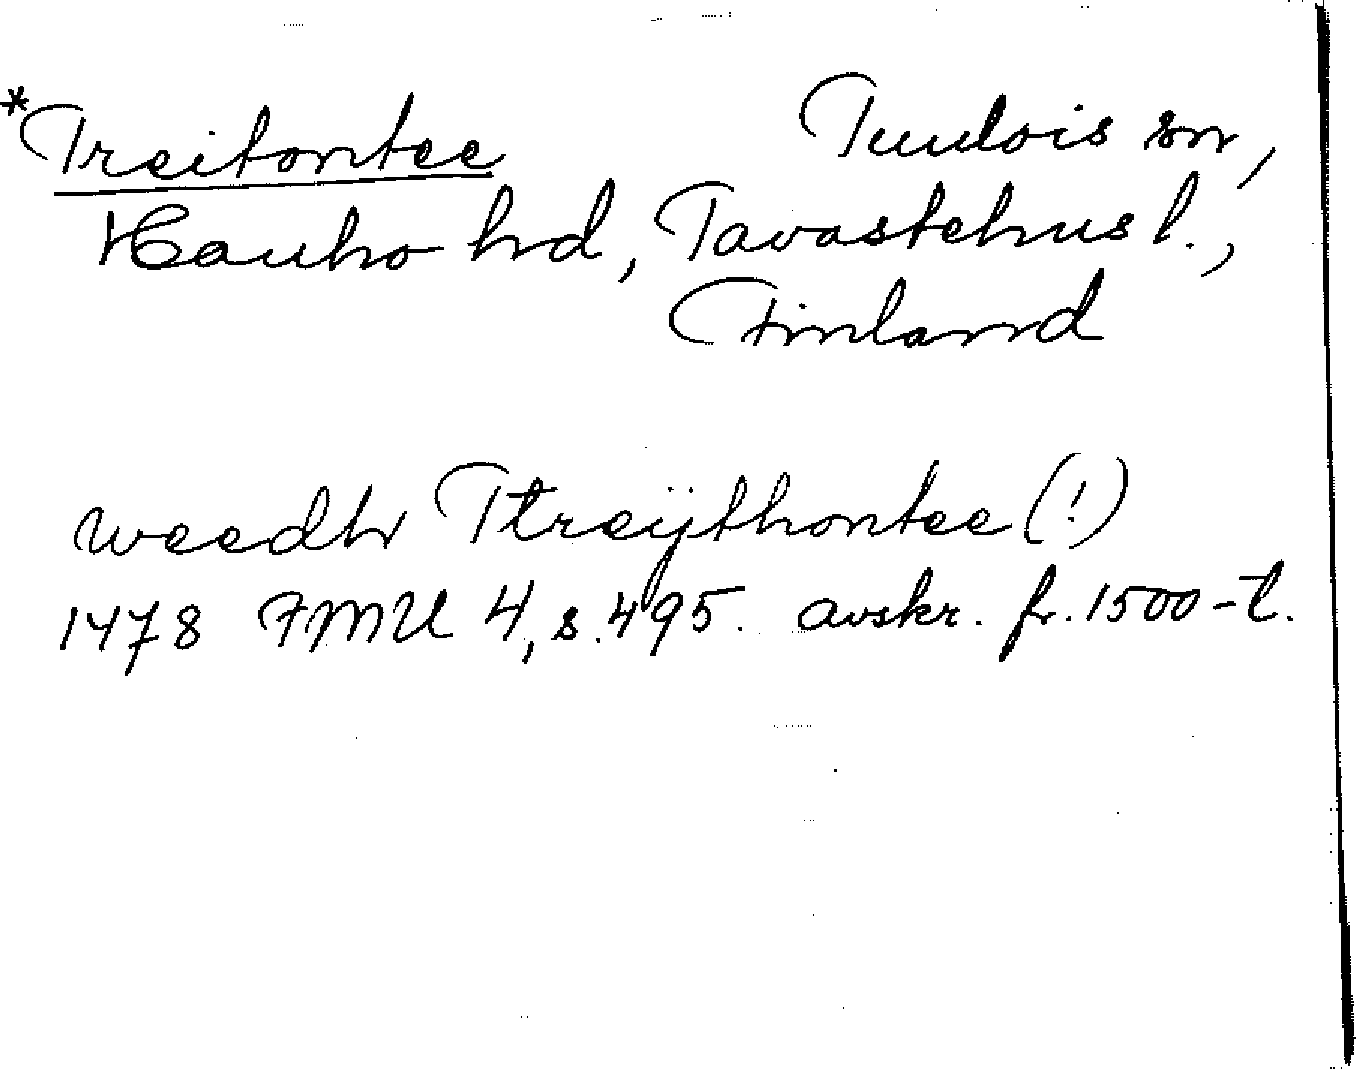 *Treitontee Tuulois sn,
Hauho hd, Tavastehus l.,
Finland
weedh Ttreÿthontee (!)
1478 FMU 4, s. 495. avskr. fr. 1500-t.